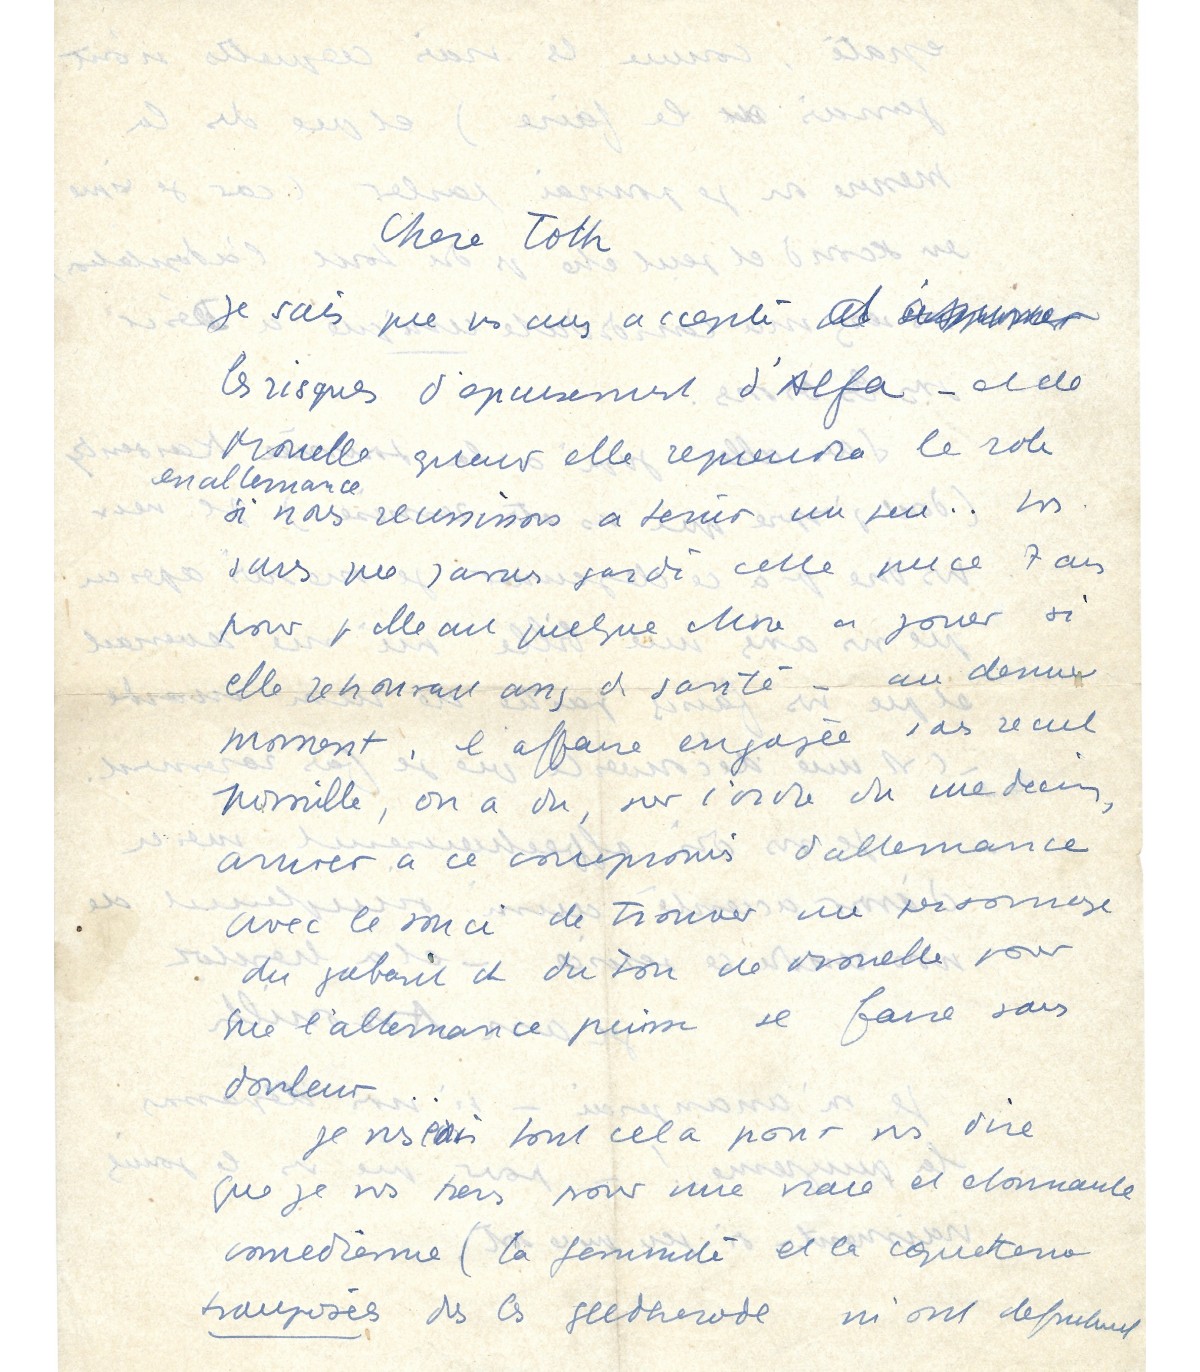 Chere Toth
je sais que vs avez accepté et
les risques d'epuisement d'Alfa - et de
elle reprendra le role
en alternance
si nous reussissons a tenir un peu.. vs
savez que j'avais gardé cette piece 7 ans
pour elle ait quelque chose a jouer si
elle retrouvait assez d santé - au dernier
moment, l'affaire engagée sans recul
possible, on a du, sur l'ordre du medecin,
arriver a ce compromis d'alternance
avec le souci de trouver un personnage
du gabarit et du ton de pour
que l'alternance puisse se faire sans
douleur
je vs dis tout cela pour vs dire
que je vs tiens pour une vraie et etonnante
comedienne (la feminité et la coquetterie
transposées ds les ghelderode m'ont